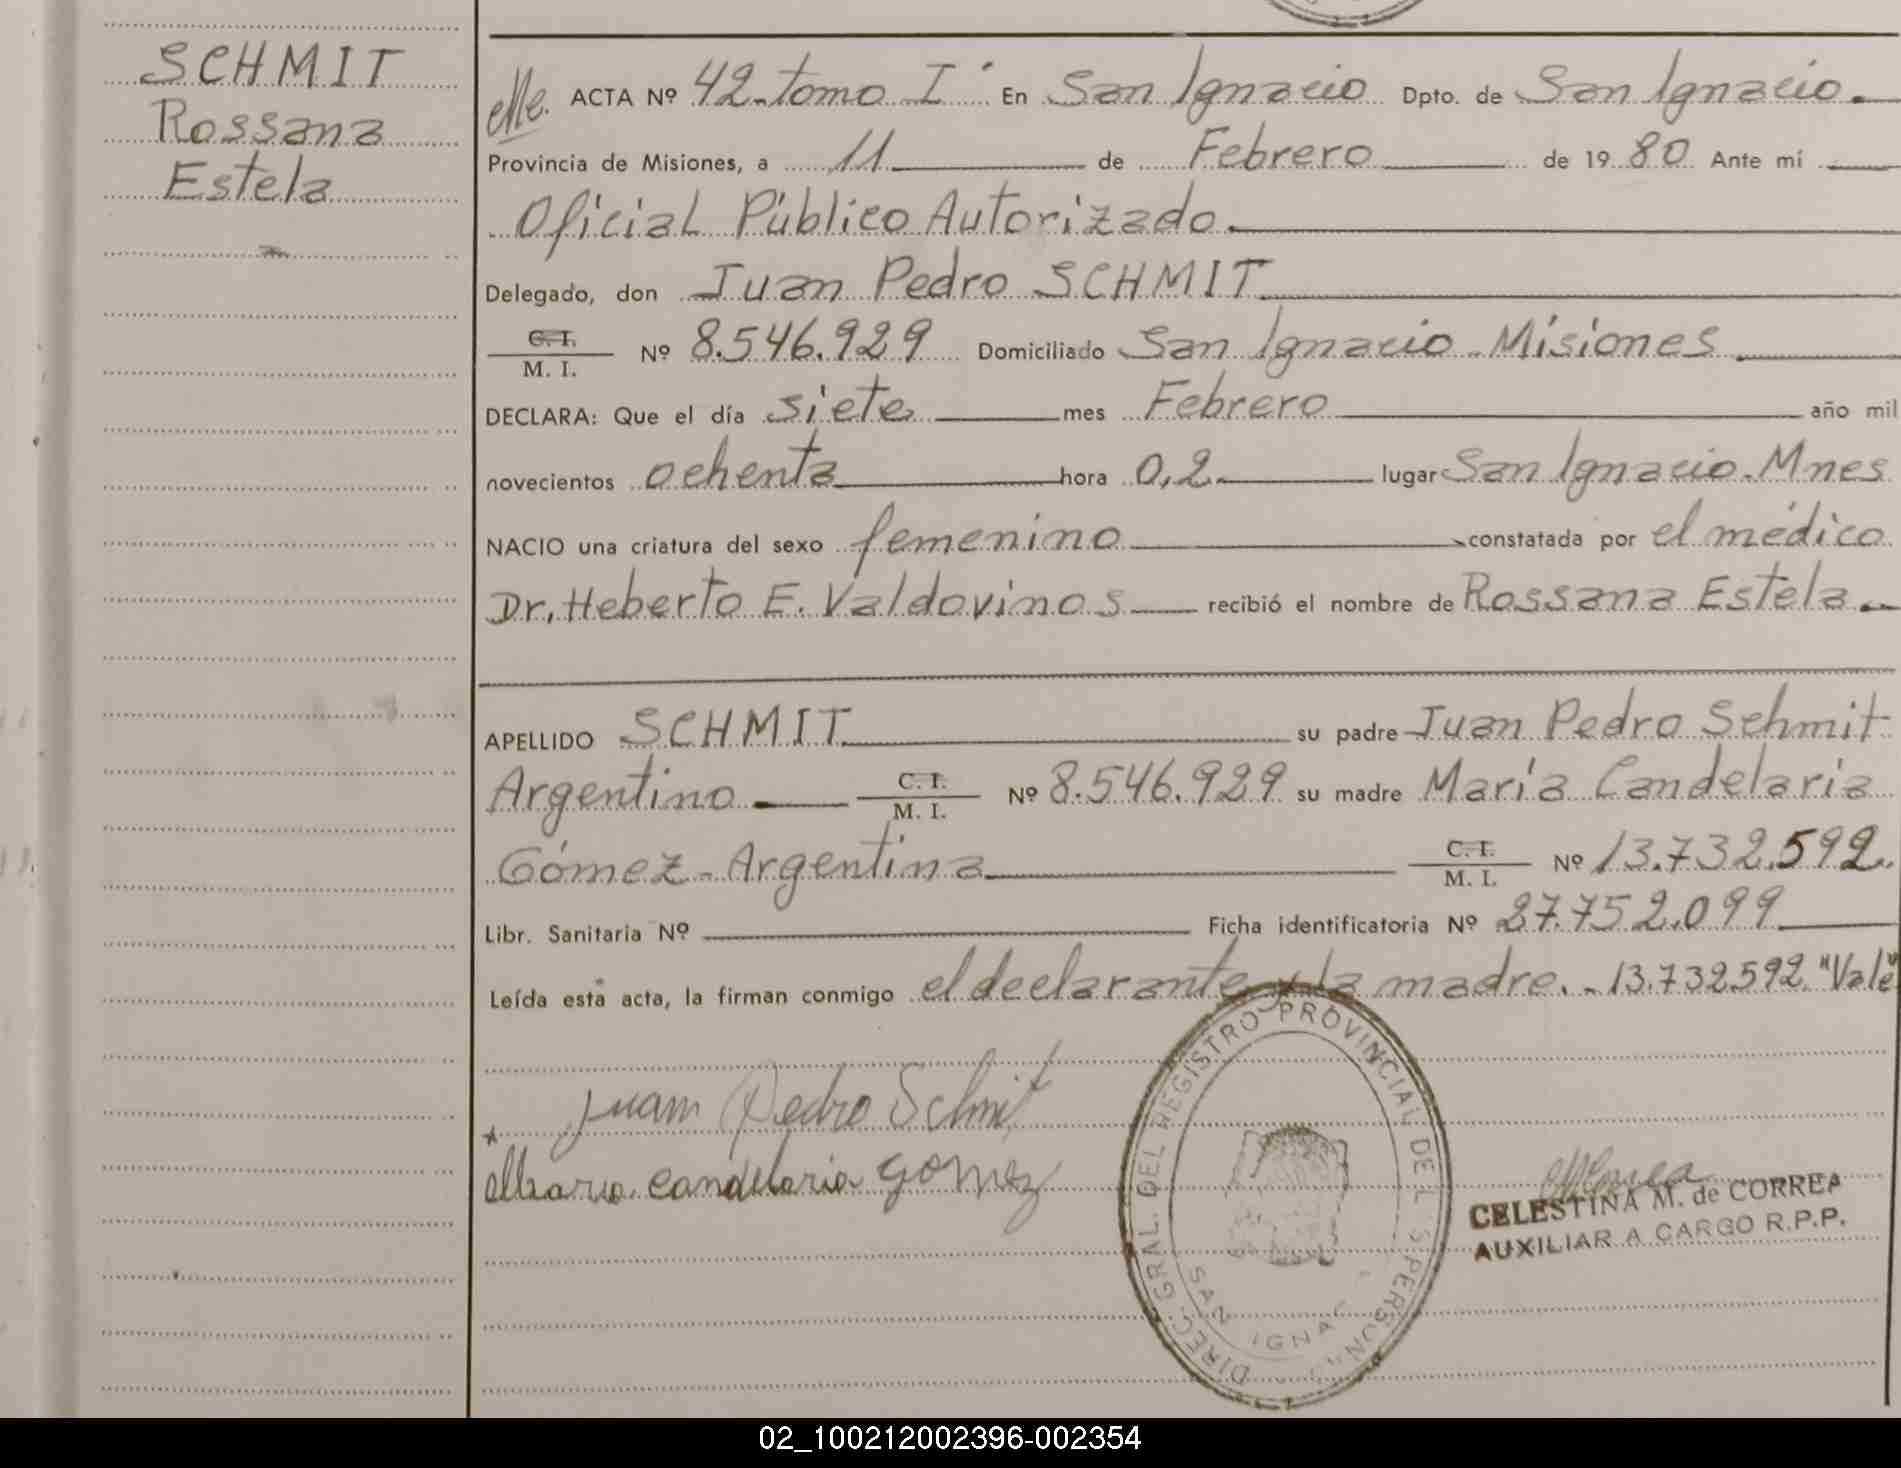 SCHMIT
Rossana
Estela
ACTA Nº 42-tomo I En San Ignacio Dpto. de San Ignacio.
Provincia de Misiones, a 11 de Febrero de 1980 Ante mí
Oficial Público Autorizado.
Delegado, don Juan Pedro SCHMIT
C. I.
M. I. Nº 8.546.929 Domiciliado San Ignacio - Misiones
DECLARA: Que el día siete mes Febrero año mil
novecientos ochenta hora 0,2 lugar San Ignacio. Mnes
NACIO una criatura del sexo femenino constatada por el médico
Dr. Heberto E. Valdovinos recibió el nombre de Rossana Estela
APELLIDO SCHMIT su padre Juan Pedro Schmit
Argentino C. I. M. I. Nº 8.546.929 su madre María Candelaria
Gómez - Argentina C. I. M. I. Nº 13.732.592.
Libr. Sanitaria Nº Ficha identificatoria Nº 27.752.099
Leída esta acta, la firman conmigo el declarante y la madre. - 13.732.592 "Vale"
Juan Pedro Schmit
Maria Candelaria Gomez
DIREC. GRAL. DEL REGISTRO PROVINCIAL DE
SAN
CELESTINA M. de CORREA
AUXILIAR A CARGO R.P.P.
02_100212002396-002354